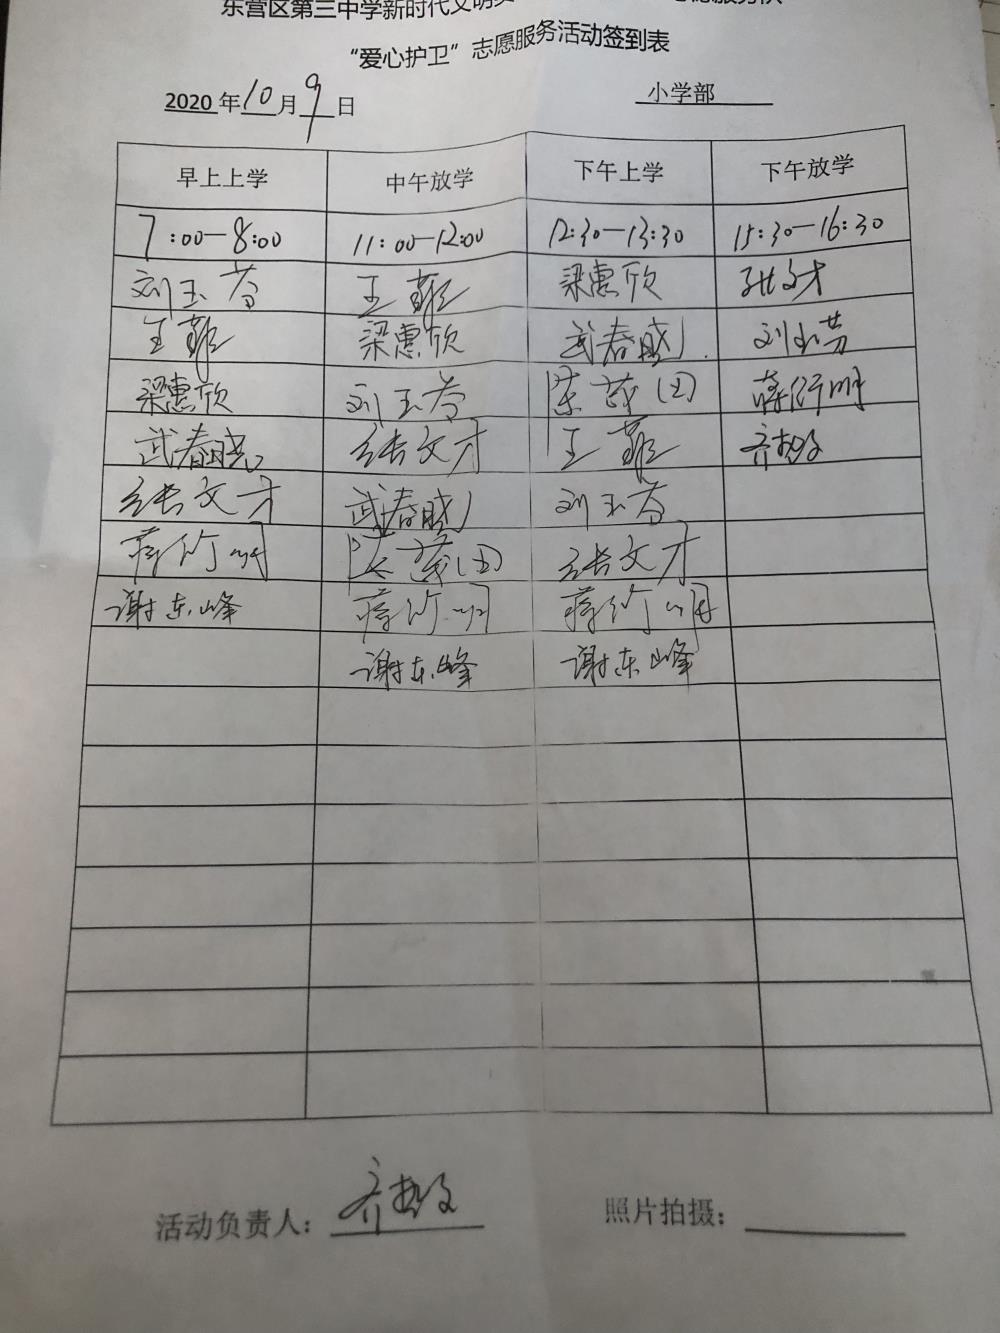 东营区第三中学新时代文明
“爱心护卫”志愿服务活动签到表
2020 年 10 月 9 日 小学部
早上上学 中午放学 下午上学 下午放学
7:00—8:00 11:00—12:00 12:30—13:30 15:30—16:30
刘玉芳 王菲 梁惠欣 张文才
王菲 梁惠欣 武春晓 刘玉芳
梁惠欣 刘玉芳 陈茂国 蒋衍明
武春晓 张文才 王菲 齐
张文才 武春晓 刘玉芳
蒋衍明 陈茂国 张文才
谢东峰 蒋衍明 蒋衍明
谢东峰 谢东峰
活动负责人: 齐 照片拍摄: